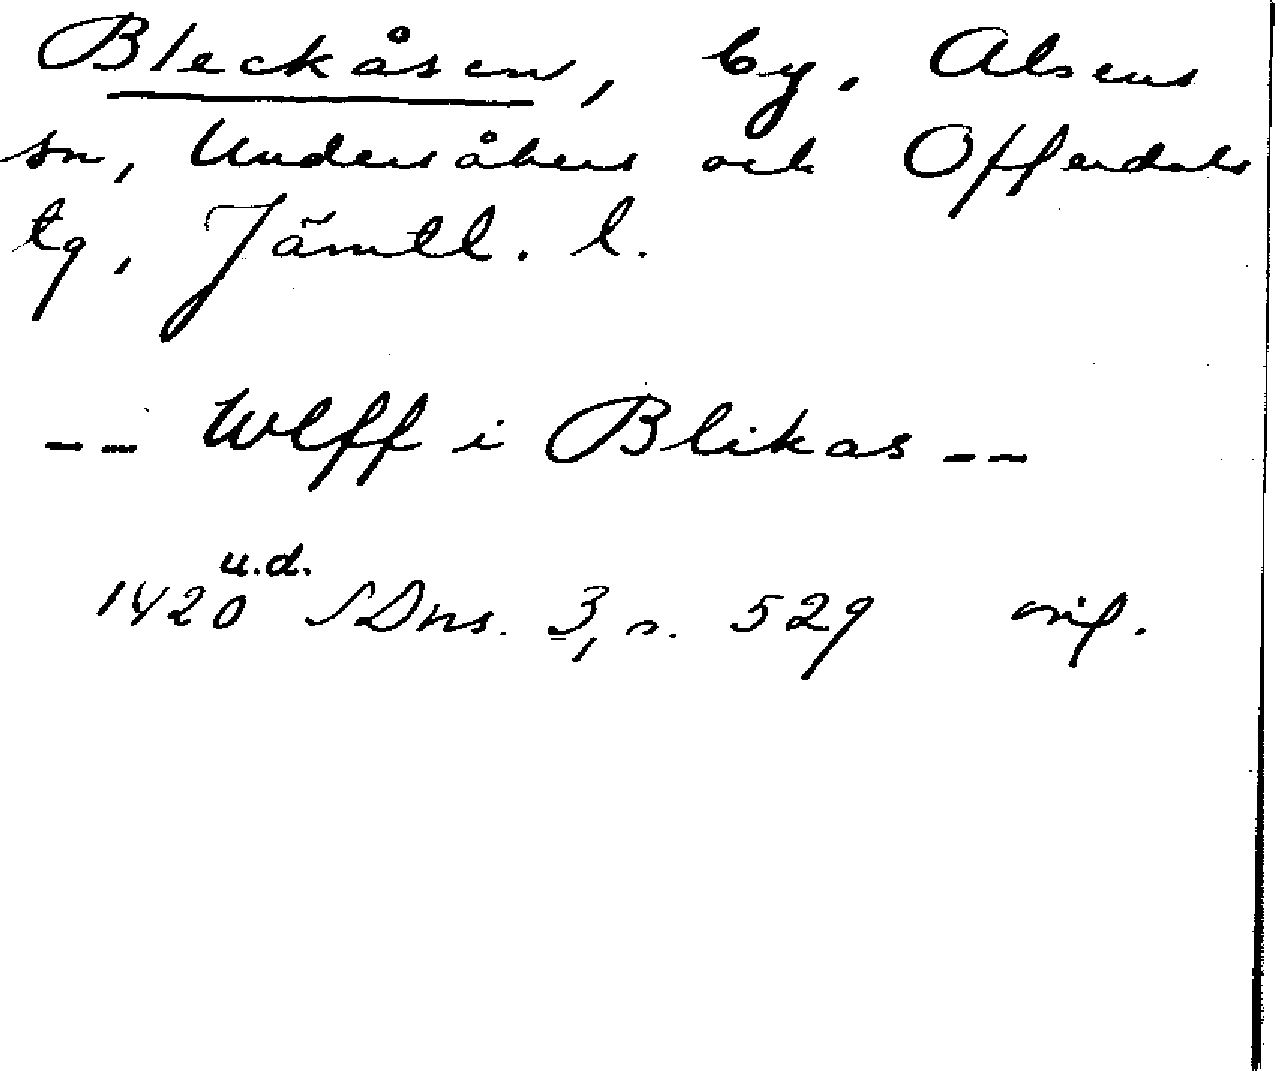 Bleckåsen, by. Alsens
sn, Undersåkers och Offerdals
tg, Jämtl. l.
-- Wlff i Blikas --
1420 u.d. SDns. 3, s. 529 orig.